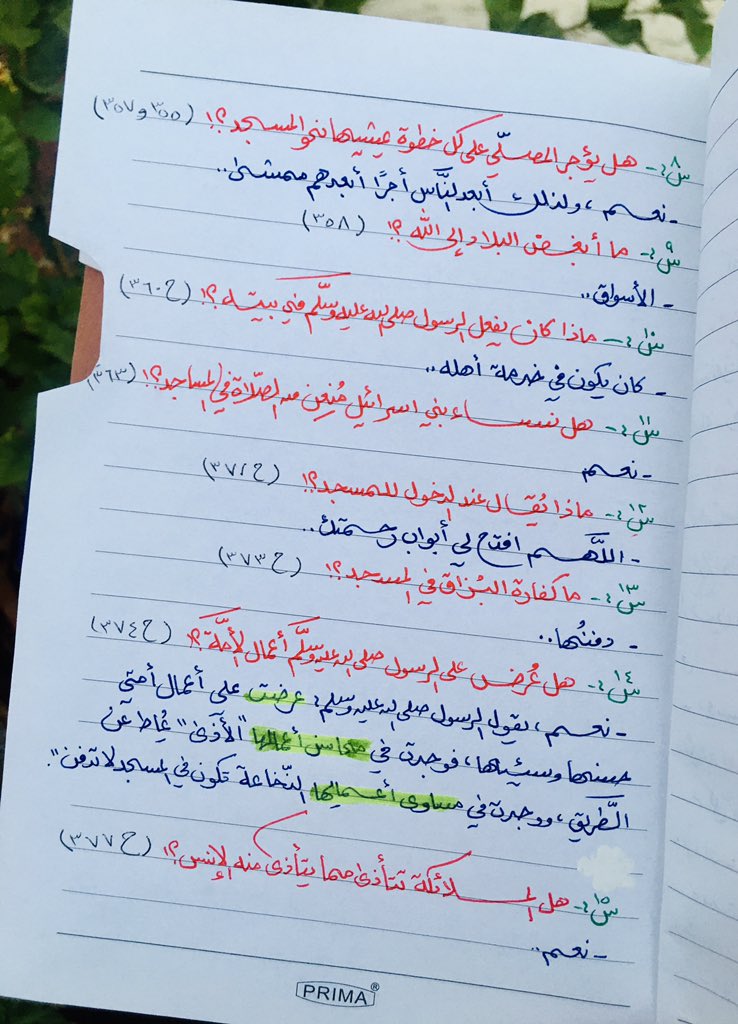 س٨- هل يؤجر المصلّي على كل خطوة يمشيها نحو المسجد؟! (٣٥٥ و ٣٥٧)
- نعم ، ولذلك أبعد النَّاس أجرًا أبعدهم ممشىً..
س٩- ما أبغض البلاد إلى الله؟! (٣٥٨)
- الأسواق..
س١٠- ماذا كان يفعل الرسول صلى الله عليه وسلَّم في بيته؟! (ح ٣٦٠)
- كان يكون في خدمة أهله..
س١١- هل نساء بني اسرائيل مُنِعن من الصّلاة في المساجد؟! (٣٦٣)
- نعم
س١٢- ماذا يُقال عند الدخول للمسجد؟! (ح ٣٧٢)
- اللَّهم افتح لي أبواب رحمتك..
س١٣- ما كفارة البُزاق في المسجد؟! (ح ٣٧٣)
- دفنُها..
س١٤- هل عُرض على الرسول صلى الله عليه وسلَّم أعمال الأمَّة؟! (ح ٣٧٤)
- نعم ، يقول الرسول صلى الله عليه وسلم: عرضت علي أعمال أمتي
حسنها وسيئها ، فوجدت في محاسن أعمالها "الأذى" يُماط عن
الطَّريق ، ووجدت في مساوئ أعمالها النّخاعة تكون في المسجد لا تدفن".
س١٥- هل الملائكة تتأذى مما يتأذى منه الإنس؟! (ح ٣٧٧)
- نعم..
PRIMA®